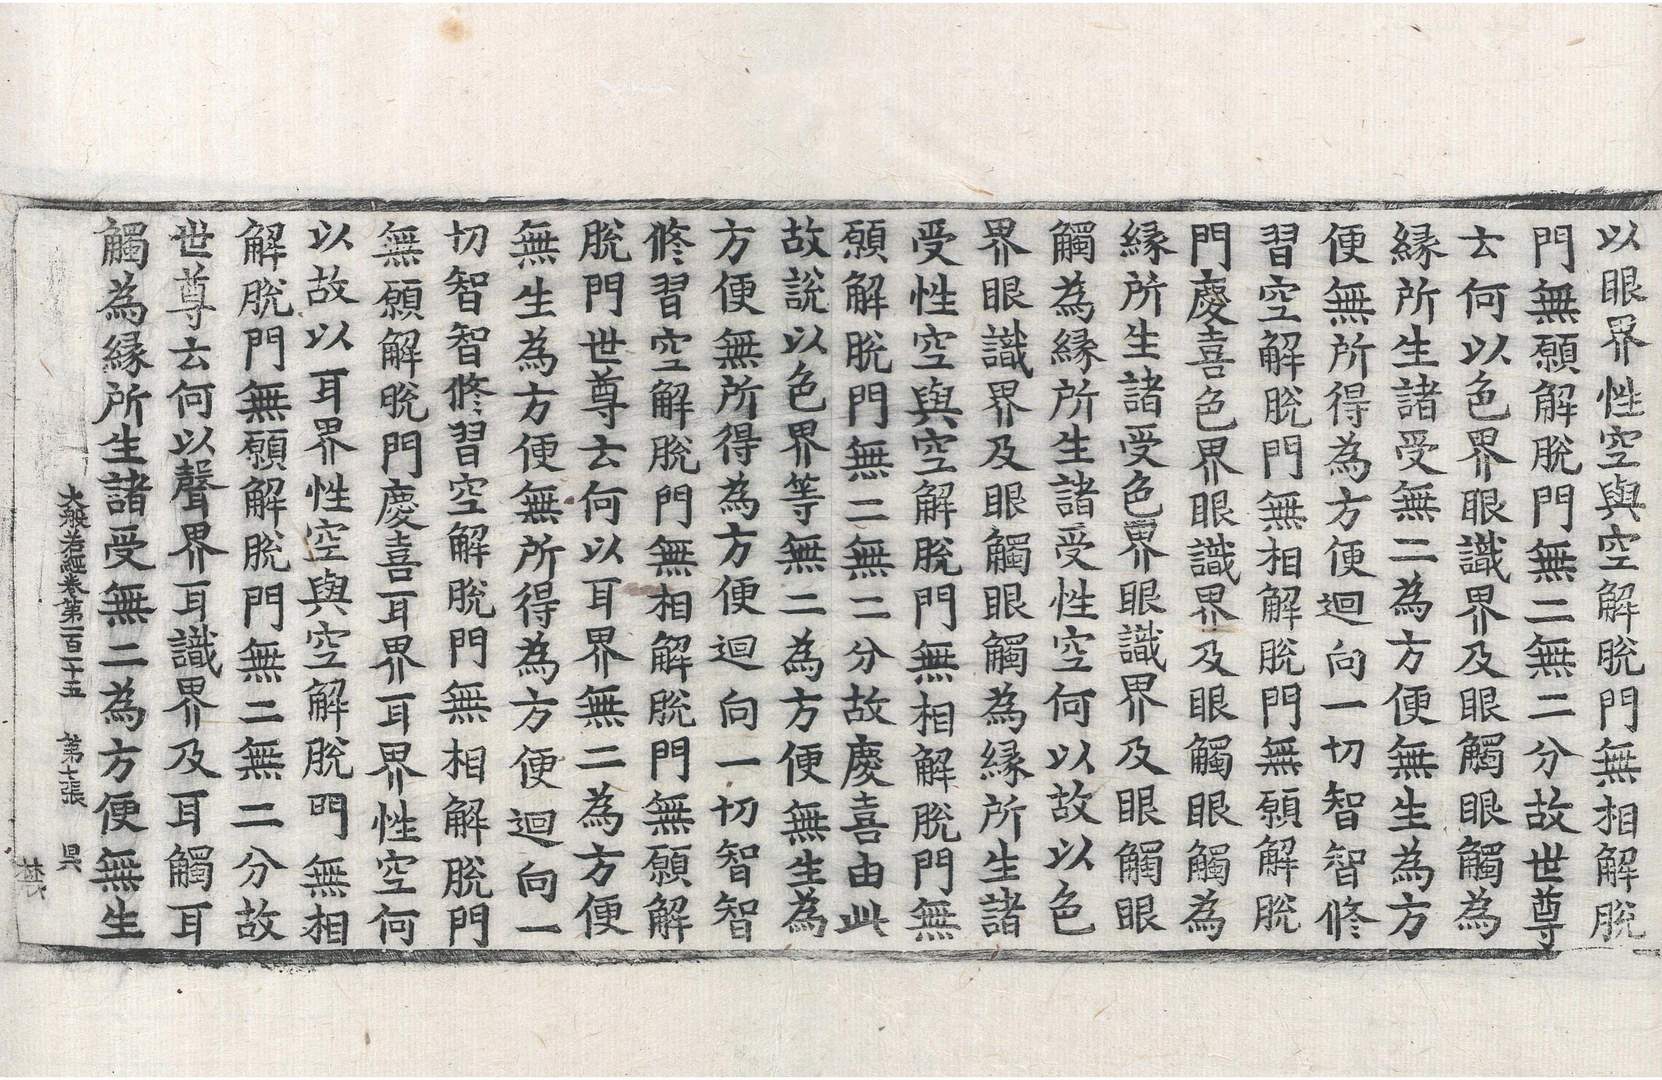 以眼界性空與空解脫門無相解脫
門無願解脫門無二無二分故世尊
云何以色界眼識界及眼觸眼觸為
縁所生諸受無二為方便無生為方
便無所得為方便迴向一切智智修
習空解脫門無相解脫門無願解脫
門慶喜色界眼識界及眼觸眼觸為
縁所生諸受色界眼識界及眼觸眼
觸為縁所生諸受性空何以故以色
界眼識界及眼觸眼觸為縁所生諸
受性空與空解脫門無相解脫門無
願解脫門無二無二分故慶喜由此
故說以色界等無二為方便無生為
方便無所得為方便迴向一切智智
修習空解脫門無相解脫門無願解
脫門世尊云何以耳界無二為方便
無生為方便無所得為方便迴向一
切智智修習空解脫門無相解脫門
無願解脫門慶喜耳界耳界性空何
以故以耳界性空與空解脫門無相
解脫門無願解脫門無二無二分故
世尊云何以聲界耳識界及耳觸耳
觸為縁所生諸受無二為方便無生
大般若經卷第一百一十五 第七張 昃